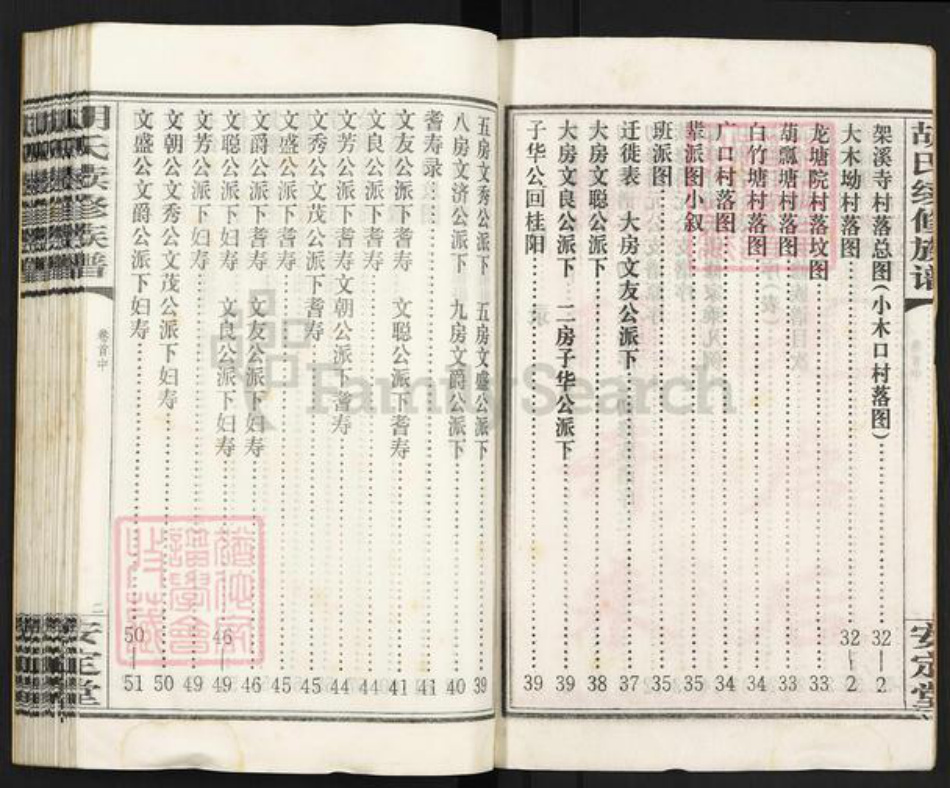 胡氏续修族谱
安定堂
架溪寺村落总图(小木口村落图)……32—2
大木坳村落图……32—2
龙塘院村落坟图……33
葫瓢塘村落图……33
白竹塘村落图……34
广口村落图……34
辈派图小叙……35
班派图……35
迁徙表 大房文友公派下……37
大房文聪公派下……38
大房文良公派下 二房子华公派下……39
子华公回桂阳……39
五房文秀公派下 五房文盛公派下……39
八房文济公派下 九房文爵公派下……40
耆寿录……41
文友公派下耆寿 文聪公派下耆寿……41
文良公派下耆寿……44
文芳公派下耆寿文朝公派下耆寿……44
文秀公文茂公派下耆寿……45
文盛公派下耆寿……45
文爵公派下耆寿 文友公派下妇寿……46
文聪公派下耆寿 文良公派下妇寿……46—49
文芳公派下妇寿……49
文朝公文秀公文茂公派下妇寿……50
文盛公文爵公派下妇寿……50—51
胡氏族修族谱
卷首中
二
安定堂
FamilySearch